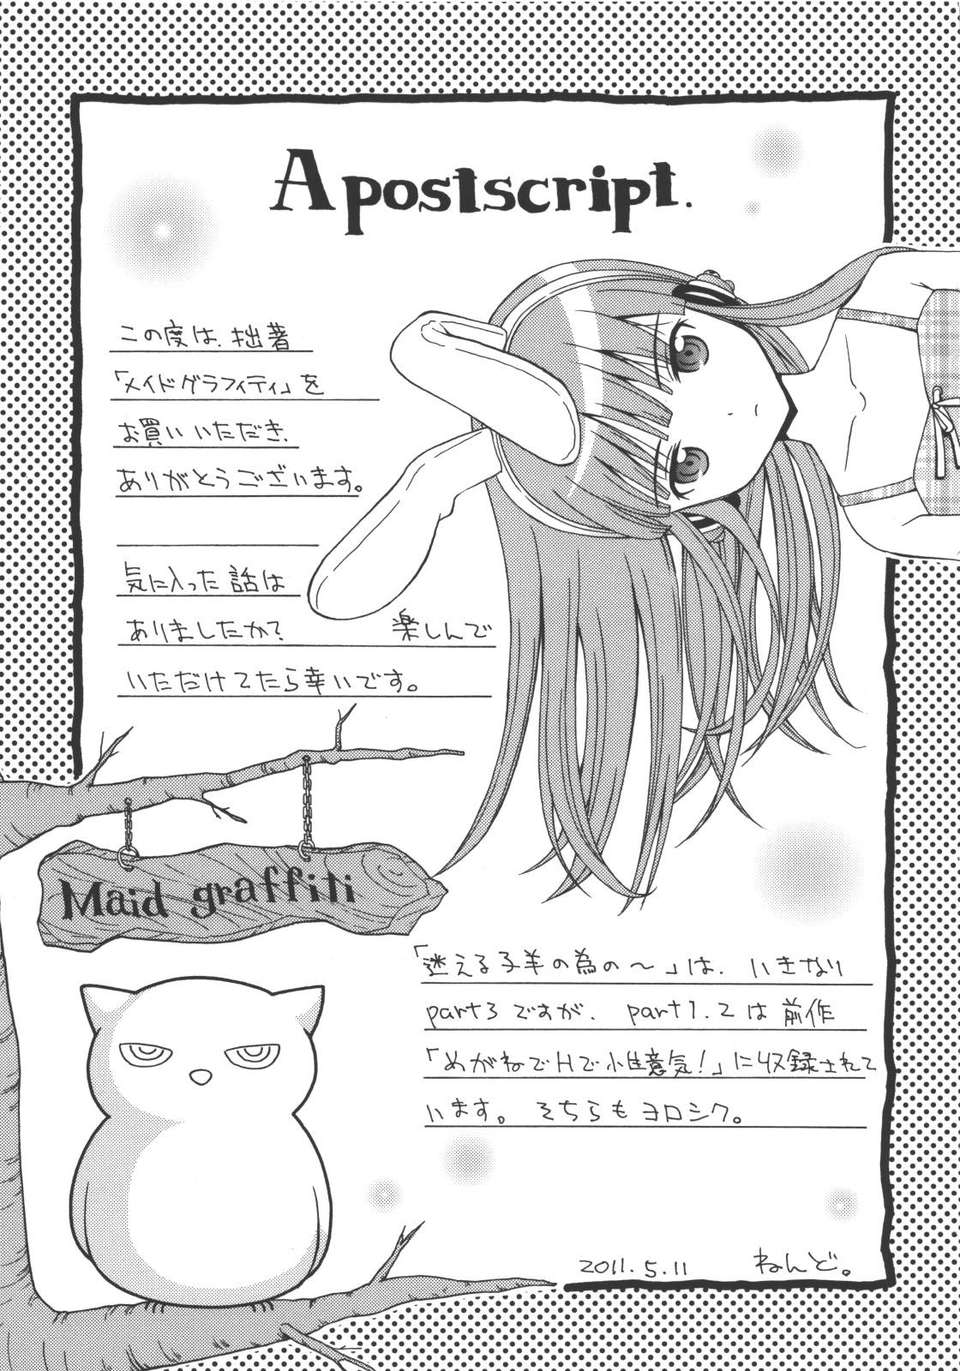 A postscript.
この度は、拙著
「メイドグラフィティ」を
お買いいただき、
ありがとうございます。
気に入った話は
ありましたか? 楽しんで
いただけてたら幸いです。
Maid graffiti
「迷える子羊の為の〜」は、いきなり
part3ですが、part1.2は前作
「めがねでHで小生意気!」に収録されて
います。そちらもヨロシク。
2011.5.11 ねんど。